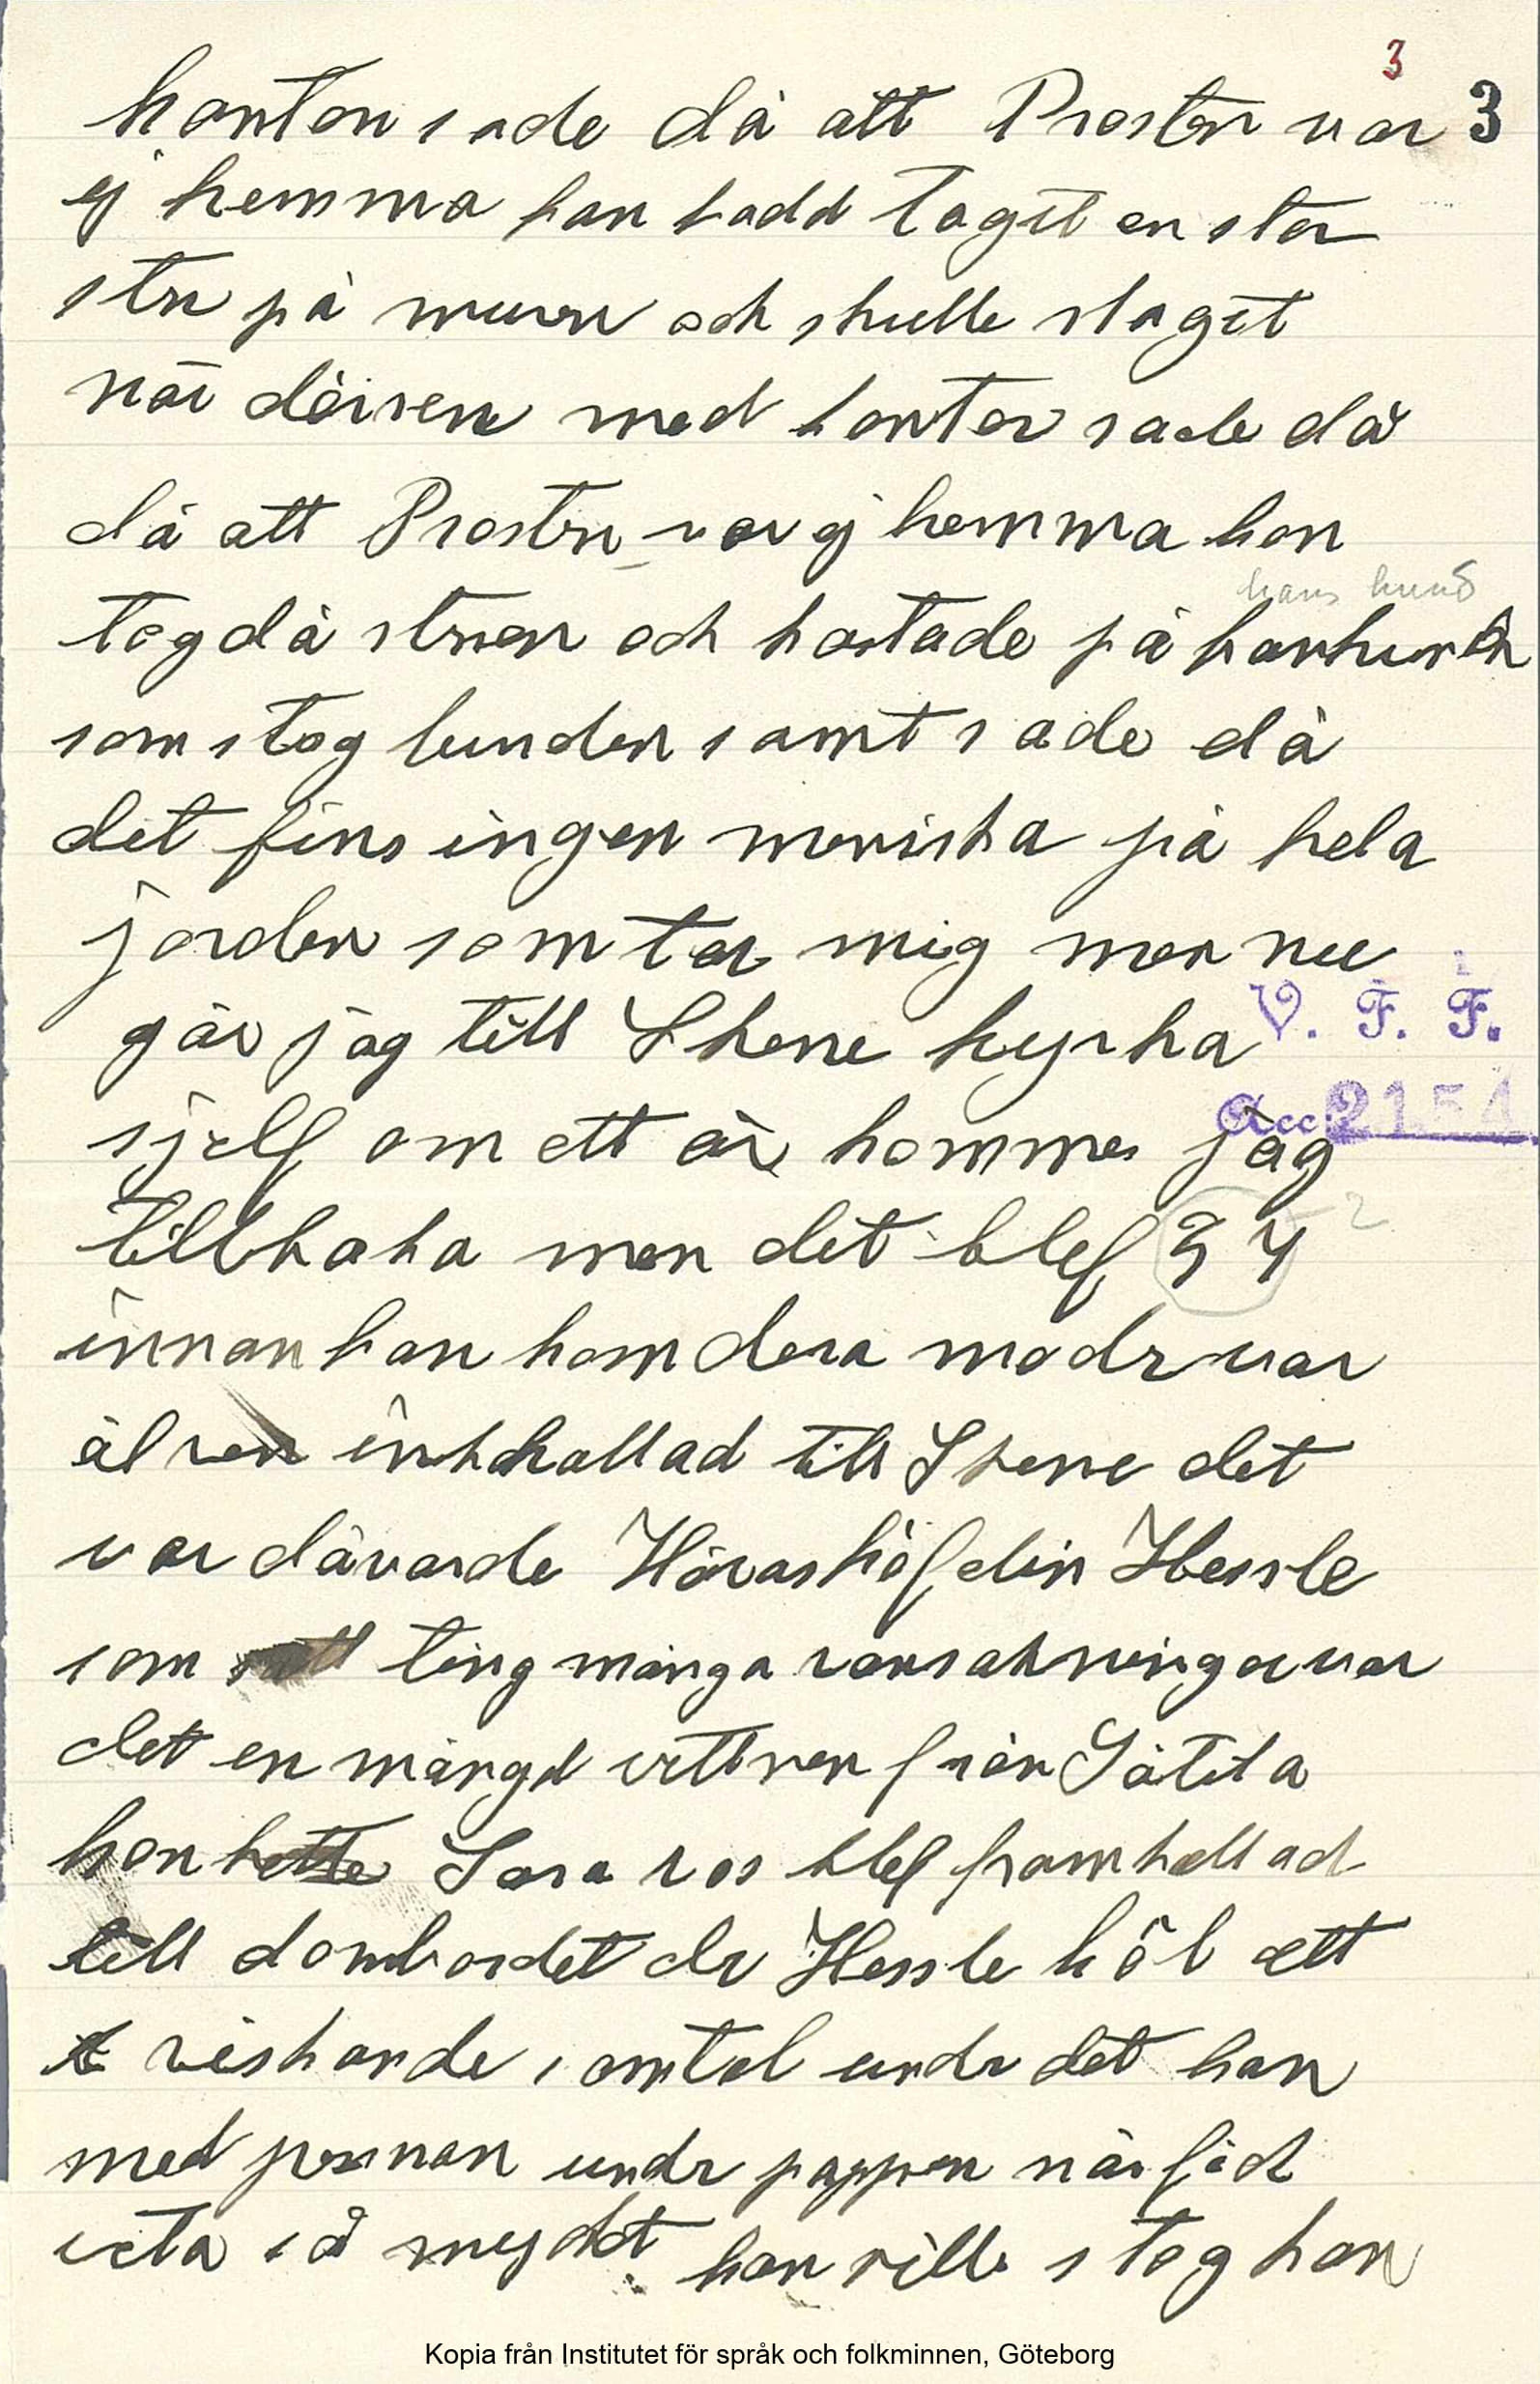 3
kanton sade då att Prosten var 3
ej hemma han hadd taget en stor
sten på muren och skulle slaget
när dörren med kanton sade då
då att Prostn var ej hemma han
hans hund
tog då stenen och kastade på hanhunden
som stog bunden samt sade då
det fins ingen meniska på hela
jorden som tar mig men nu
går jag till Skene kyrka
V. F. F.
sjelf om ett år kommer jag
Acc: 2154
tillbaka men det blef 3 4
innan han kom dera modr var
älven inkkallad till Skene det
var dåvarde Häradshöfdin Hessle
som satt ting många ransakningar var
det en mängd vittnen från Sätila
hon hette Sara ros blef framkallad
till dombordet dr Hessle höl ett
viskande samtal undr det han
med pennan undr pappen när fåd
veta så myckt han ville stog han
Kopia från Institutet för språk och folkminnen, Göteborg